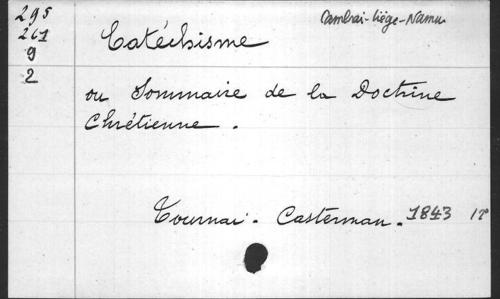 295
261
9
2
Cambrai-Liège-Namur
Catéchisme
ou Sommaire de la Doctrine
Chrétienne.
Tournai. Casterman. 1843 1°